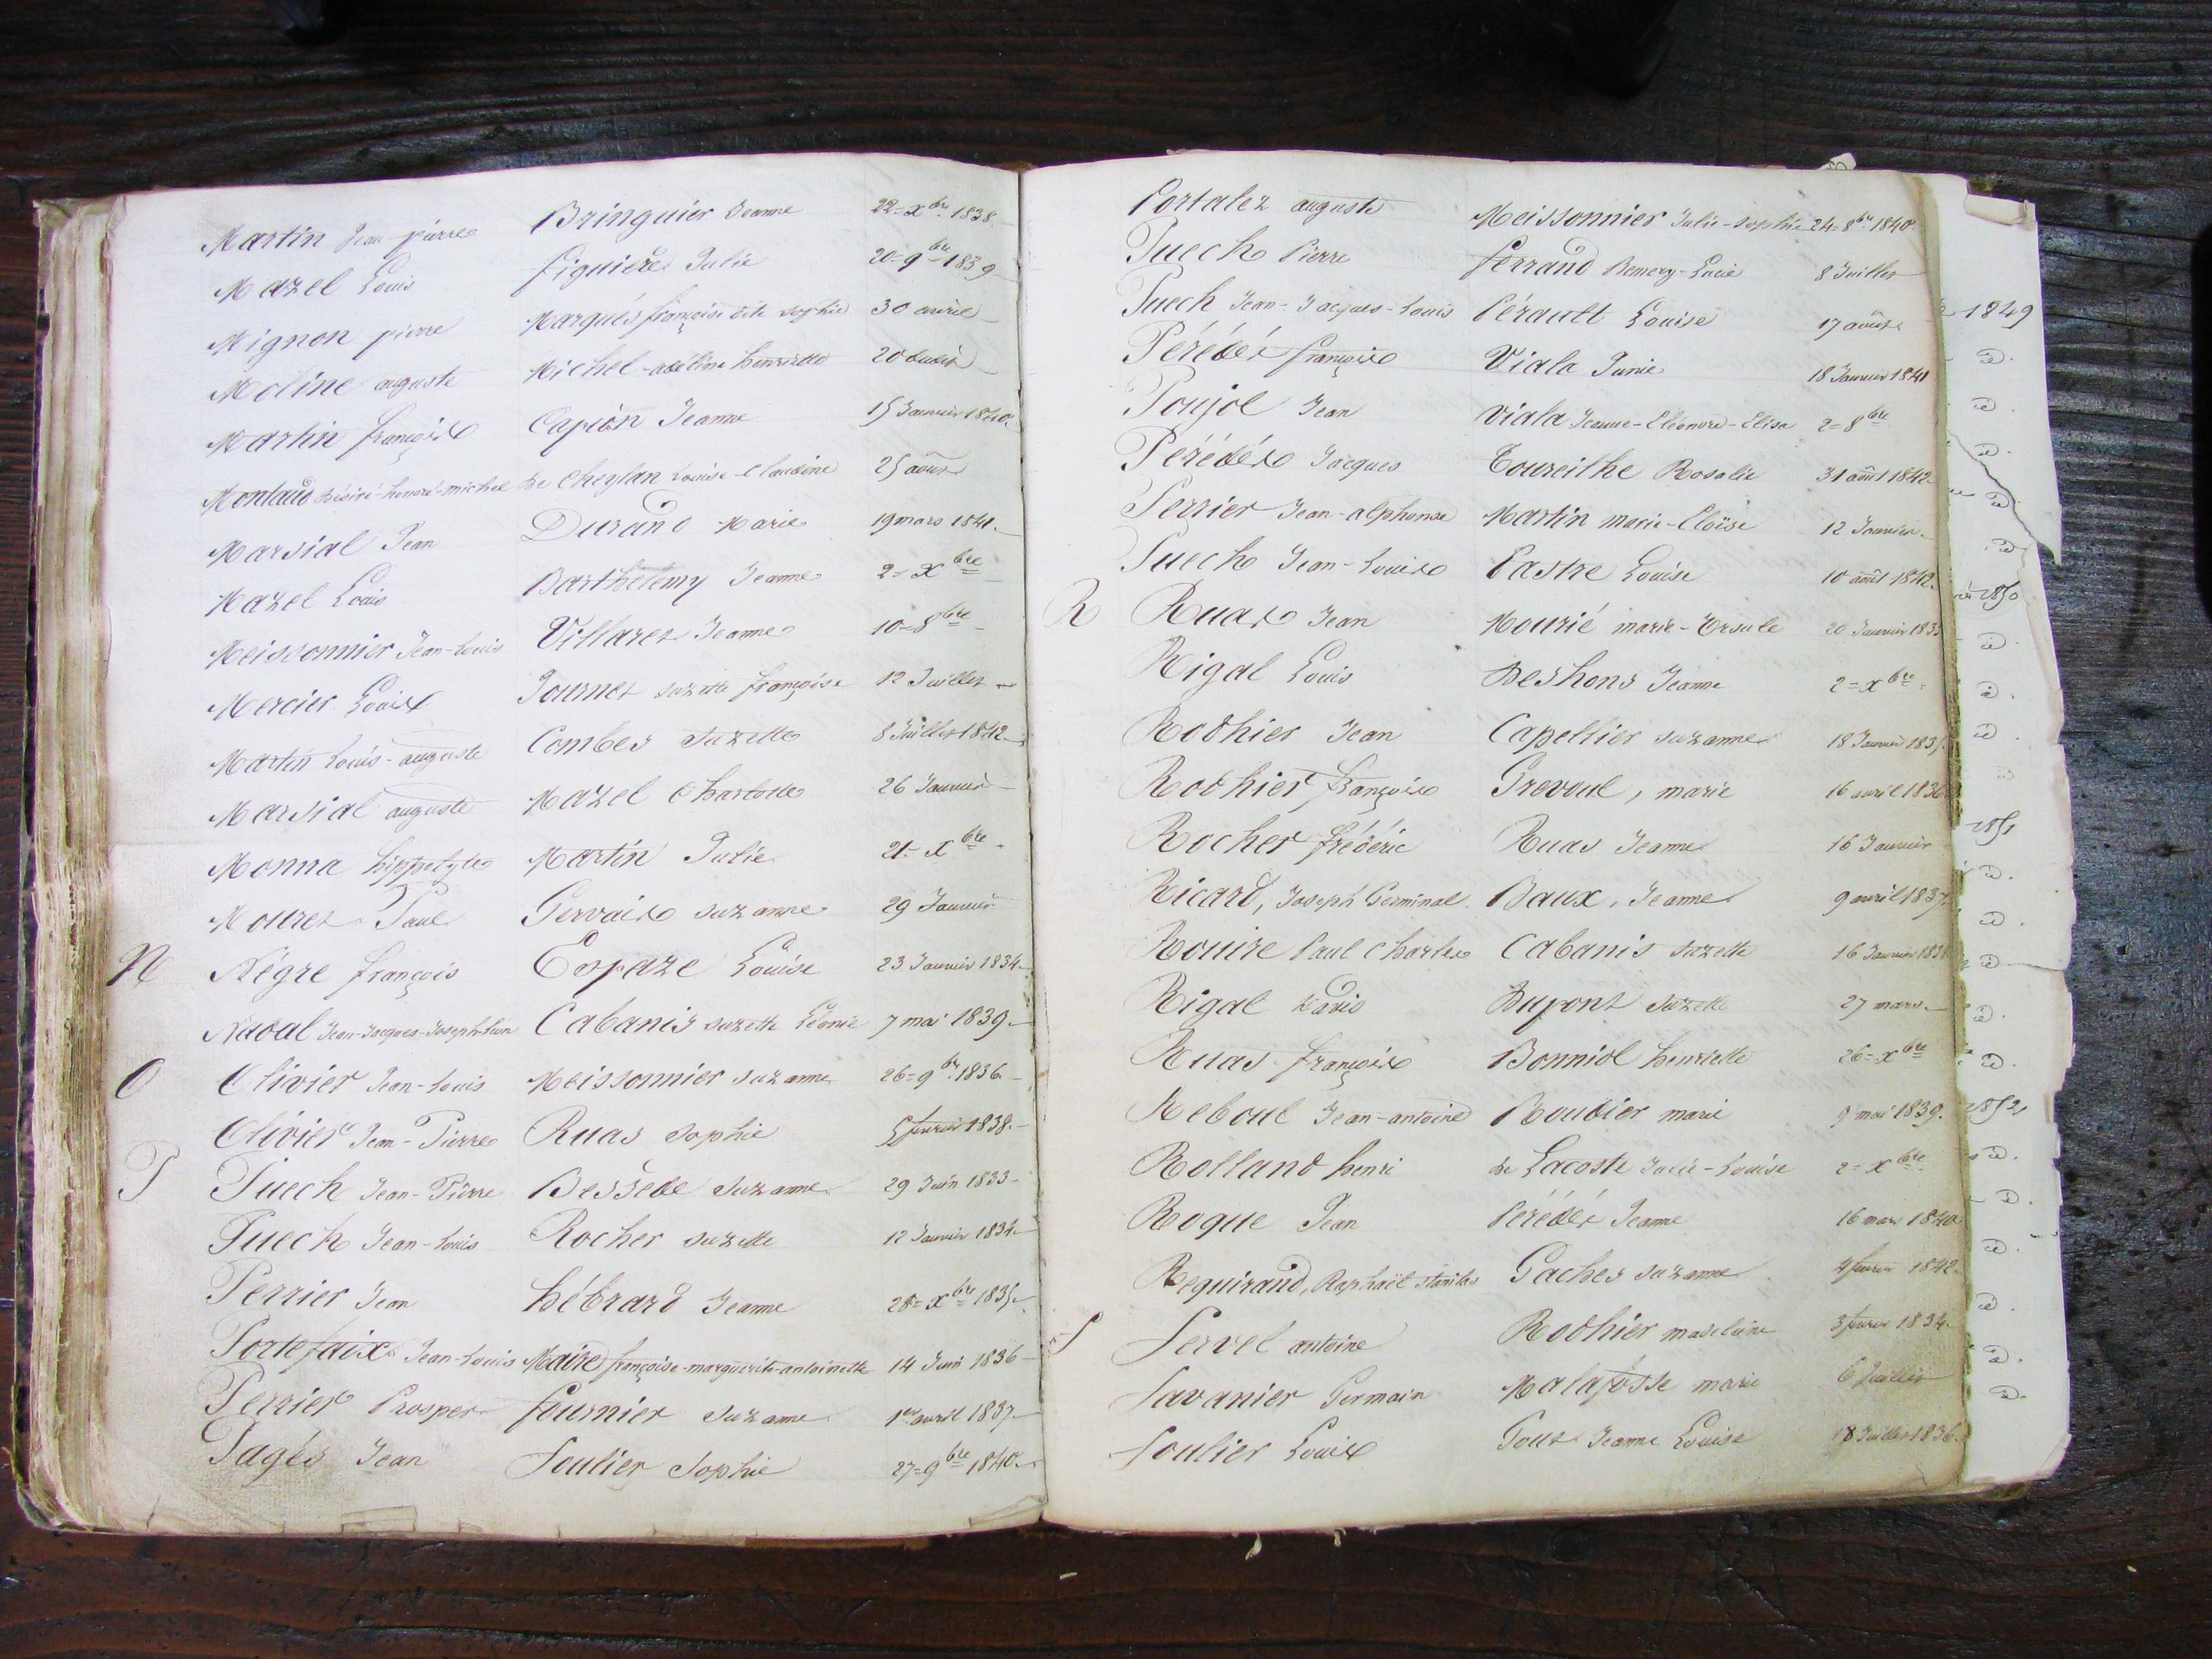 Martin Jean-pierre Bringuier Jeanne 22=Xbre 1838
Mazel Louis figuiere Julie 20=9bre 1839
Mignon pierre Marqués françoise dite sophie 30 avril
Moline auguste Michel-adéline henriette 20
Martin françois Capion Jeanne 15 Janvier 1840.
Montaud désiré-honoré-michel de Cheylan Louise-Claudine 25 août
Marsial Jean Durand Marie 19 mars 1841.
Mazel Louis Barthélemy Jeanne 2=Xbre
Meissonnier Jean-Louis Villaret Jeanne 10=8bre
Mercier Louis Journet suzette françoise 12 Juillet
Martin Louis-auguste Combes Suzette 8 Juillet 1842
Marsial auguste Mazel Charlotte 26 Janvier
Monna hippolyte Martin Julie 21=Xbre
Mouret Paul Gervais suzanne 29 Janvier
N Négre françois Espaze Louise 23 Janvier 1834
Nadal Jean-Jacques-Joseph Cabanis suzette Léonie 7 mai 1839
O Olivier Jean-Louis Meissonnier suzanne 26=9bre 1836.
Olivier Jean-Pierre Ruas sophie 5 fevrier 1838.
P Puech Jean-Pierre Bessede suzanne 29 Juin 1833
Puech Jean-Louis Rocher suzette 12 Janvier 1834
Perrier Jean hébrard Jeanne 28=Xbre 1835
Portefaix Jean-Louis Maire françoise-marguerite-antoinette 14 Juin 1836
Perrier Prosper fournier suzanne 1er avril 1837
Pagès Jean Soulier Sophie 27=9bre 1840
Portalez auguste Meissonnier Julie-sophie 24=8bre 1840
Puech Pierre ferrand Lucie 8 Juillet
Puech Jean-Jacques-Louis Pérault Louise 17 août
Pérédès françois Viala Junie 18 Janvier 1841
Poujol Jean Viala Jeanne-Eléonore-Elisa 2=8bre
Pérédès Jacques Toureille Rosalie 31 août 1842
Perrier Jean-alphonse Martin marie-Eloïse 12 Janvier
Puech Jean-Louis Pastre Louise 10 août 1842
R Ruas Jean Mourié marie-Ursule 20 Janvier 183
Rigal Louis Deshons Jeanne 2=Xbre
Rodhier Jean Capellier suzanne 18 Janvier 1835
Rodhier françois Grevoul, marie 16 avril 1836
Rocher frédéric Ruas Jeanne 16 Janvier
Ricard, Joseph Germinal Baux, Jeanne 9 avril 1837
Rouire Paul Charles Cabanis suzette 16 Janvier 1838
Rigal David Dupont suzette 27 mars
Ruas françois Bonniol henriette 26=Xbre
Reboul Jean-antoine Roudier marie 9 mai 1839.
Rolland henri de Lacoste Julie-Louise 2=Xbre
Roque Jean Pérédès Jeanne 16 mars 1840
Requirand, Raphaël Gaches suzanne 4 fevrier 1842
S Servel antoine Rodhier madeleine 3 fevrier 1834
Savanier Germain Malafosse marie 6 Juillet
Soulier Louis Pous Jeanne Louise 18 Juillet 1836.
1849
1850
1851
1852